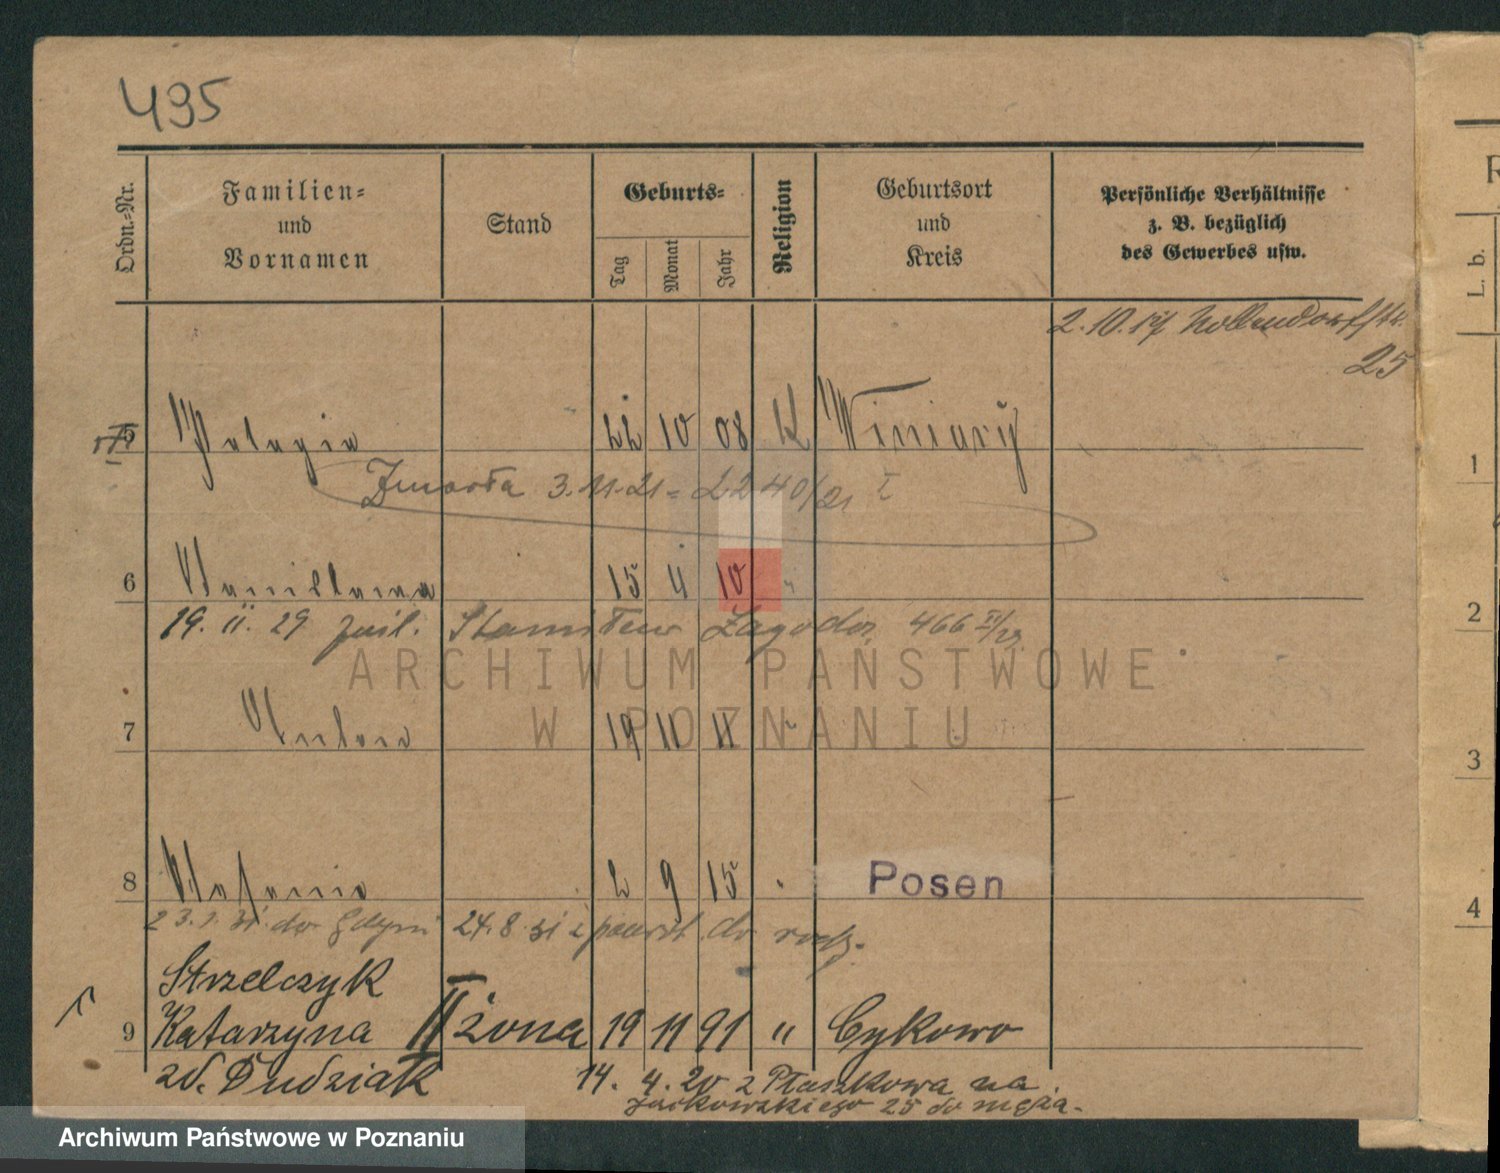 495
Ordn.-Nr.
Familien-
und
Vornamen
Stand
Geburts-
Tag
Monat
Jahr
Religion
Geburtsort
und
Kreis
Persönliche Verhältnisse
z. B. bezüglich
des Gewerbes usw.
L. b.
R
2.10.17 Nollendorfstr.
25
5 Pelagia 22 10 08 K Winiary
Zmarła 3.11.21 = 2240/21 I
6 Stanislawa 15 4 10 "
19. II. 29 Stanisław 466
7 Antonie 19 11 11 "
8 Stefanie 2 9 15 " Posen
do Gdyni 24.8.31 z powrot do rodz.
Strzelczyk
9 Katarzyna II żona 19 11 91 " Cykowo
zd. Dudziak 14. 4. 20 z Ptaszkowa na
Jackowskiego 25 do męża.
1
2
3
4
ARCHIWUM PAŃSTWOWE
W POZNANIU
Archiwum Państwowe w Poznaniu